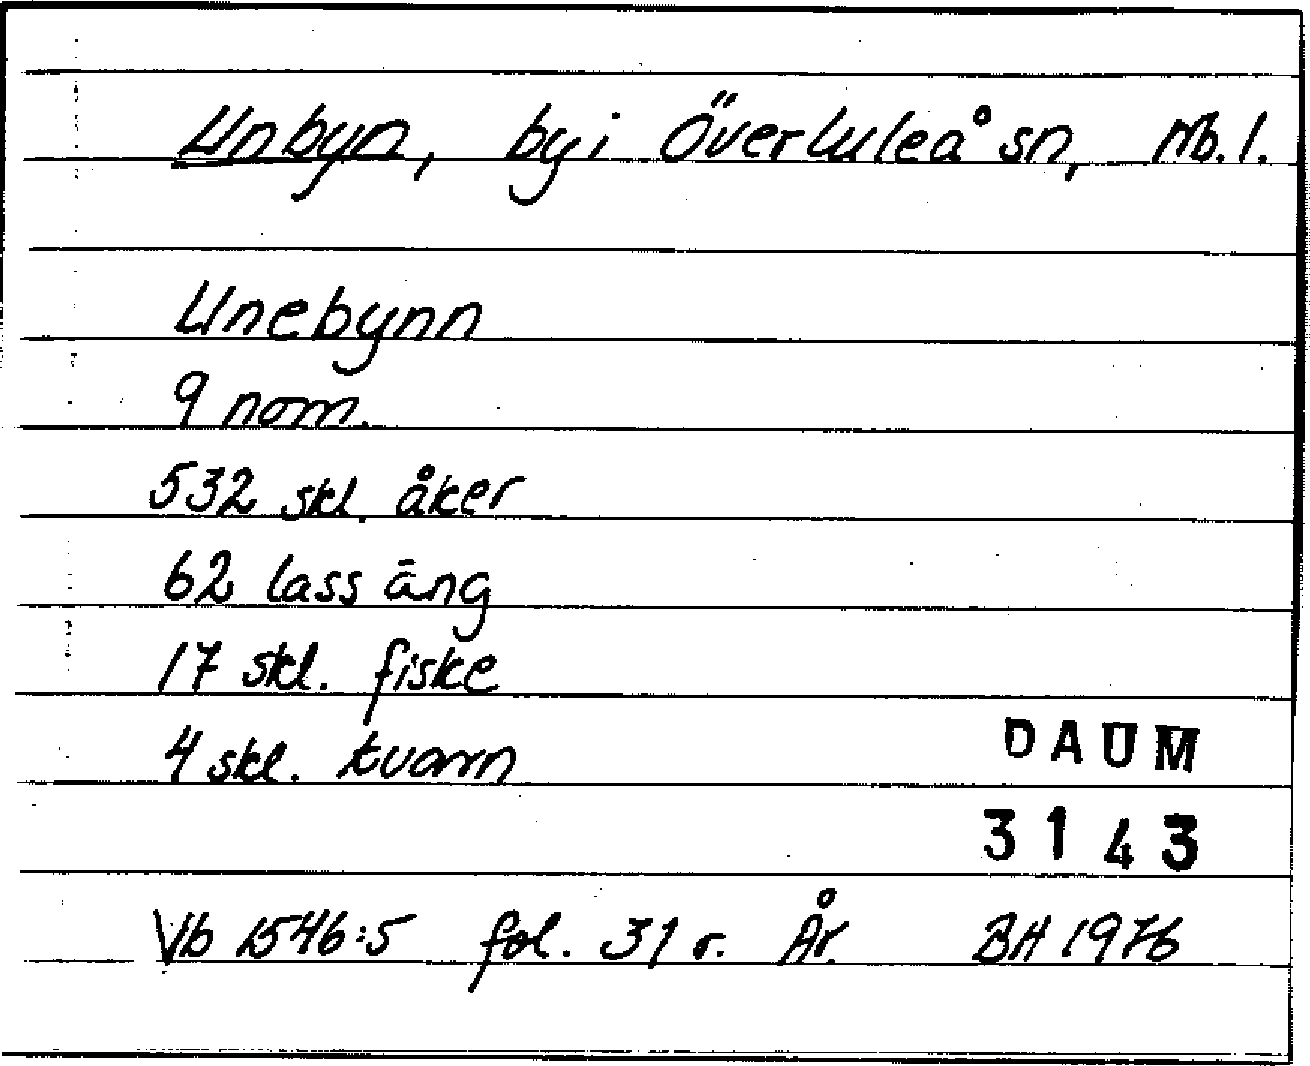 Unbyn, by i Överluleå sn, Nb. l.
Unebynn
9 nom.
532 skl. åker
62 lass äng
17 skl. fiske
4 skl. kvarn
DAUM
3143
Vb 1546:5 fol. 31 r. År. BH 1976